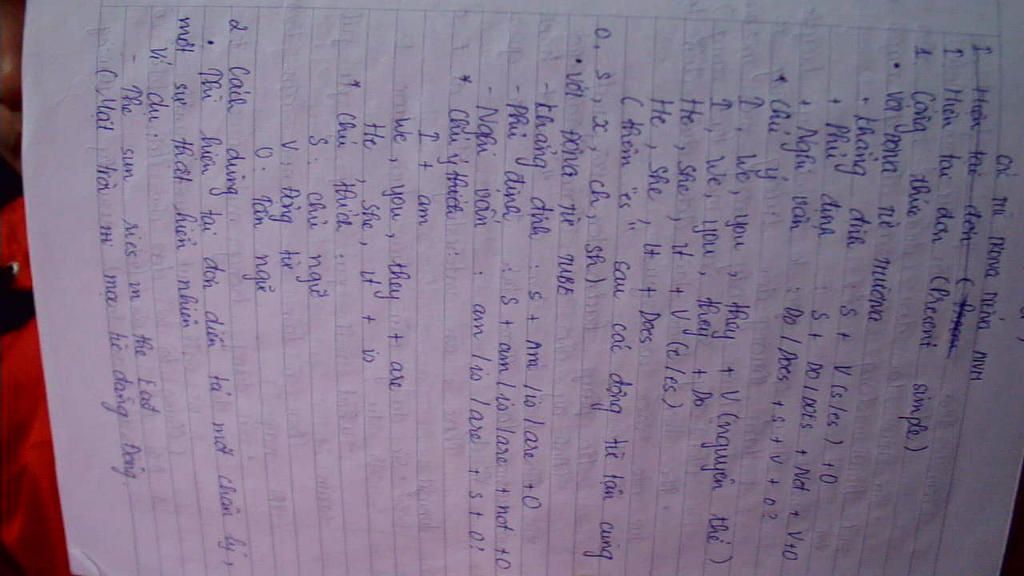 CÁC THÌ TRONG TIẾNG ANH
I Hiện tại đơn (
I Hiện tại đơn (Present simple)
1 Công thức
• Với động từ thường
+ Khẳng định : S + V(s/es) + O
+ Phủ định : S + DO/DOES + Not + V+O
+ Nghi vấn : Do/Does + S + V + O?
* Chú ý
I, We, you, they + V (nguyên thể)
I, We, you, they + Do
He, She, It + V (s/es)
He, She, It + Does
(thêm "es" sau các động từ tận cùng
O, S, X, Ch, Sh)
• Với động từ tobe
- Khẳng định : S + Am/is/are + O
- Phủ định : S + am/is/are + not + O
- Nghi vấn : am/is/are + S + O?
* Chú ý thích :
I + am
We, you, they + are
He, She, it + is
* Chú thích :
S : chủ ngữ
V : động từ
O : tân ngữ
2 Cách dùng
• Thì hiện tại đơn diễn tả một chân lý,
một sự thật hiển nhiên
Ví dụ :
- The sun ries in the East
() Mặt trời mọc từ đằng Đông